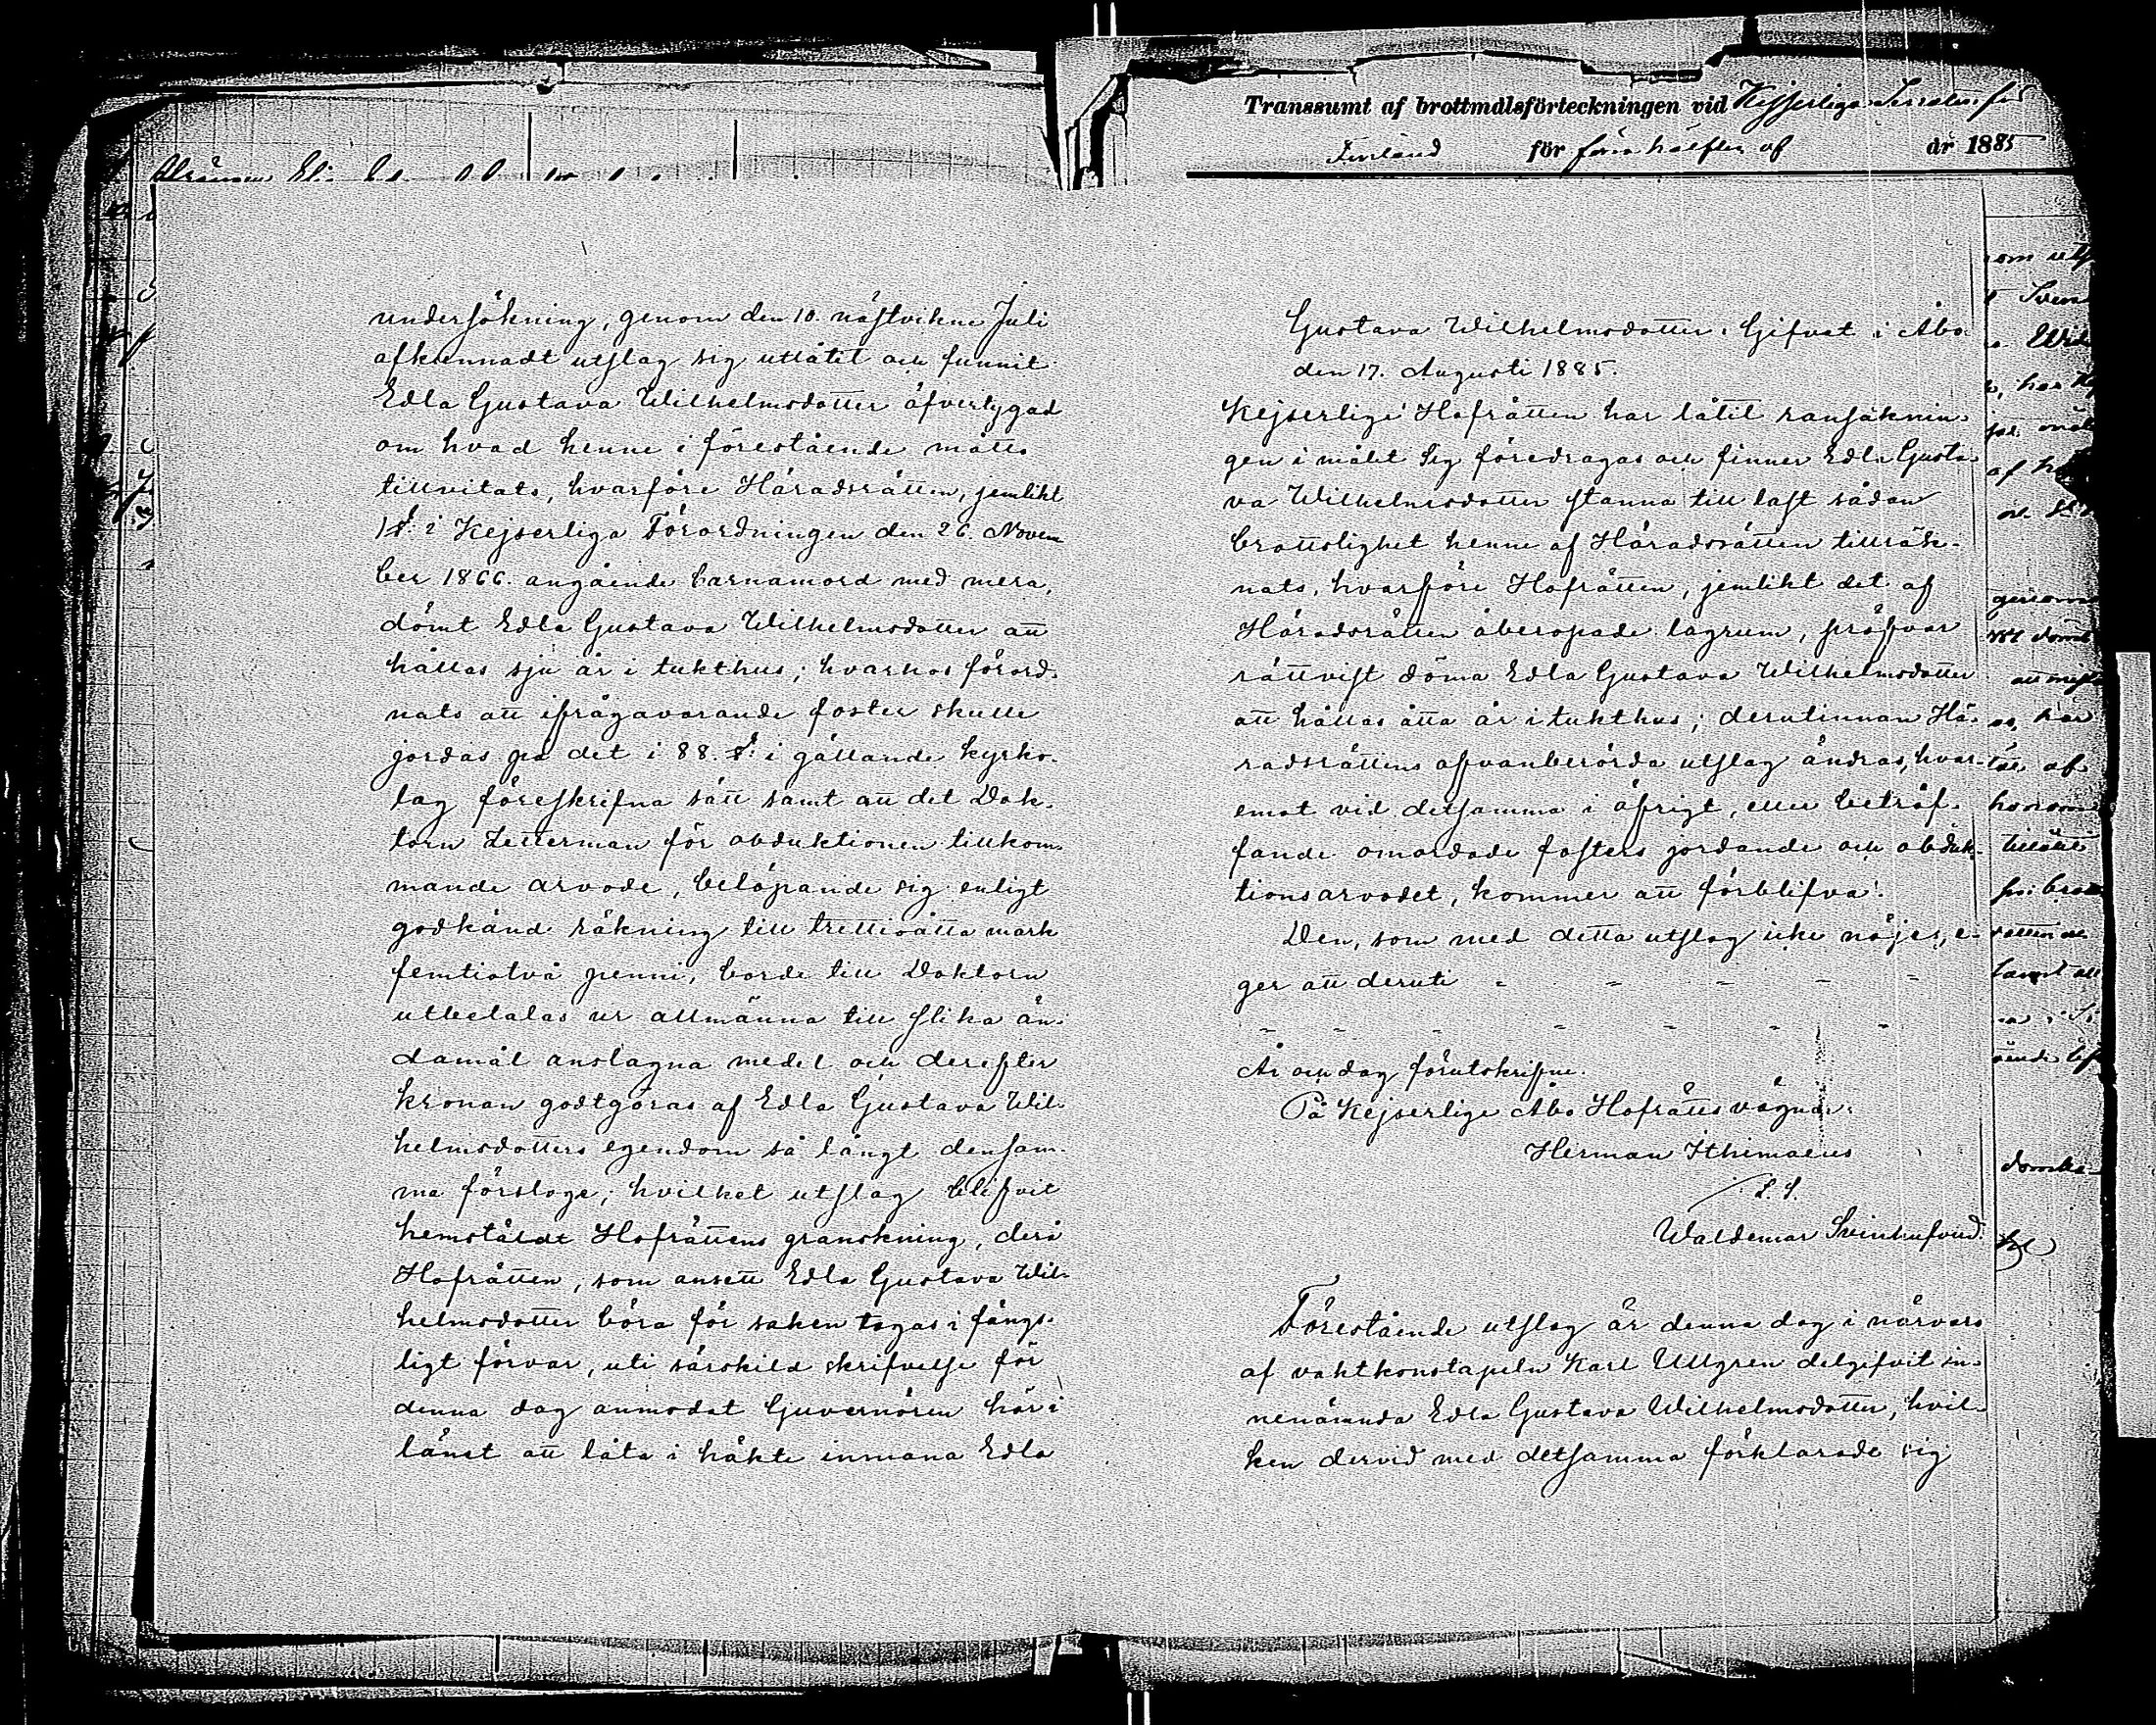 Transsumt af brottmålsförteckningen vid Kejserliga Senaten för
Finland för förra hälften af år 1885
undersökning, genom den 10. nästvikne Juli
afkunnadt utslag sig utlåtit och funnit
Edla Gustava Wilhelmsdotter öfvertygad
om hvad henne i förestående måtto
tillvitats, hvarföre Häradsrätten, jemlikt
1 §: i Kejserliga Förordningen den 26. Novem
ber 1866. angående barnamord med mera,
dömt Edla Gustava Wilhelmsdotter att
hållas sju år i tukthus; hvarhos förord-
nats att ifrågavarande foster skulle
jordas på det i 88. §: i gällande kyrko-
lag föreskrifna sätt samt att det Dok-
torn Zetterman för obduktionen tillkom-
mande arvode, belöpande sig enligt
godkänd räkning till trettioåtta mark
femtiotvå penni, borde till Doktorn
utbetalas ur allmänna till slika än-
damål anslagna medel och derefter
kronan godtgöras af Edla Gustava Wil-
helmsdotters egendom så långt densam-
ma försloge; hvilket utslag blifvit
hemstäldt Hofrättens granskning, deri
Hofrätten, som ansett Edla Gustava Wil-
helmsdotter böra för saken tagas i fängs-
ligt förvar, uti särskild skrifvelse för
denna dag anmodat Guvernören här i
länet att låta i häkte inmana Edla
Gustava Wilhelmsdotter. Gifvet i Åbo
den 17. Augusti 1885.
Kejserliga Hofrätten har låtit ransaknin-
gen i målet Sig föredragas och finner Edla Gusta-
va Wilhelmsdotter stanna till last sådan
brottslighet henne af Häradsrätten tillräk-
nats, hvarföre Hofrätten, jemlikt det af
Häradsrätten åberopade lagrum, pröfvar
rättvist döma Edla Gustava Wilhelmsdotter
att hållas åtta år i tukthus; derutinnan Hä-
radsrättens ofvanberörda utslag ändras, hvar-
emot vid detsamma i öfrigt, eller beträf-
fande omordade fosters jordande och obduk-
tionsarvodet, kommer att förblifva.
Den, som med detta utslag icke nöjes, e-
ger att deruti - - - - -
- - - - - - -
År och dag förutskrifne.
På Kejserliga Åbo Hofrätts vägnar:
Herman Ithimaeus
L. S.
Waldemar Svinhufvud.
Förestående utslag är denna dag i närvaro
af vaktkonstapeln Karl Ullgren delgifvit in-
nenämnda Edla Gustava Wilhelmsdotter, hvil-
ken dervid med detsamma förklarade sig